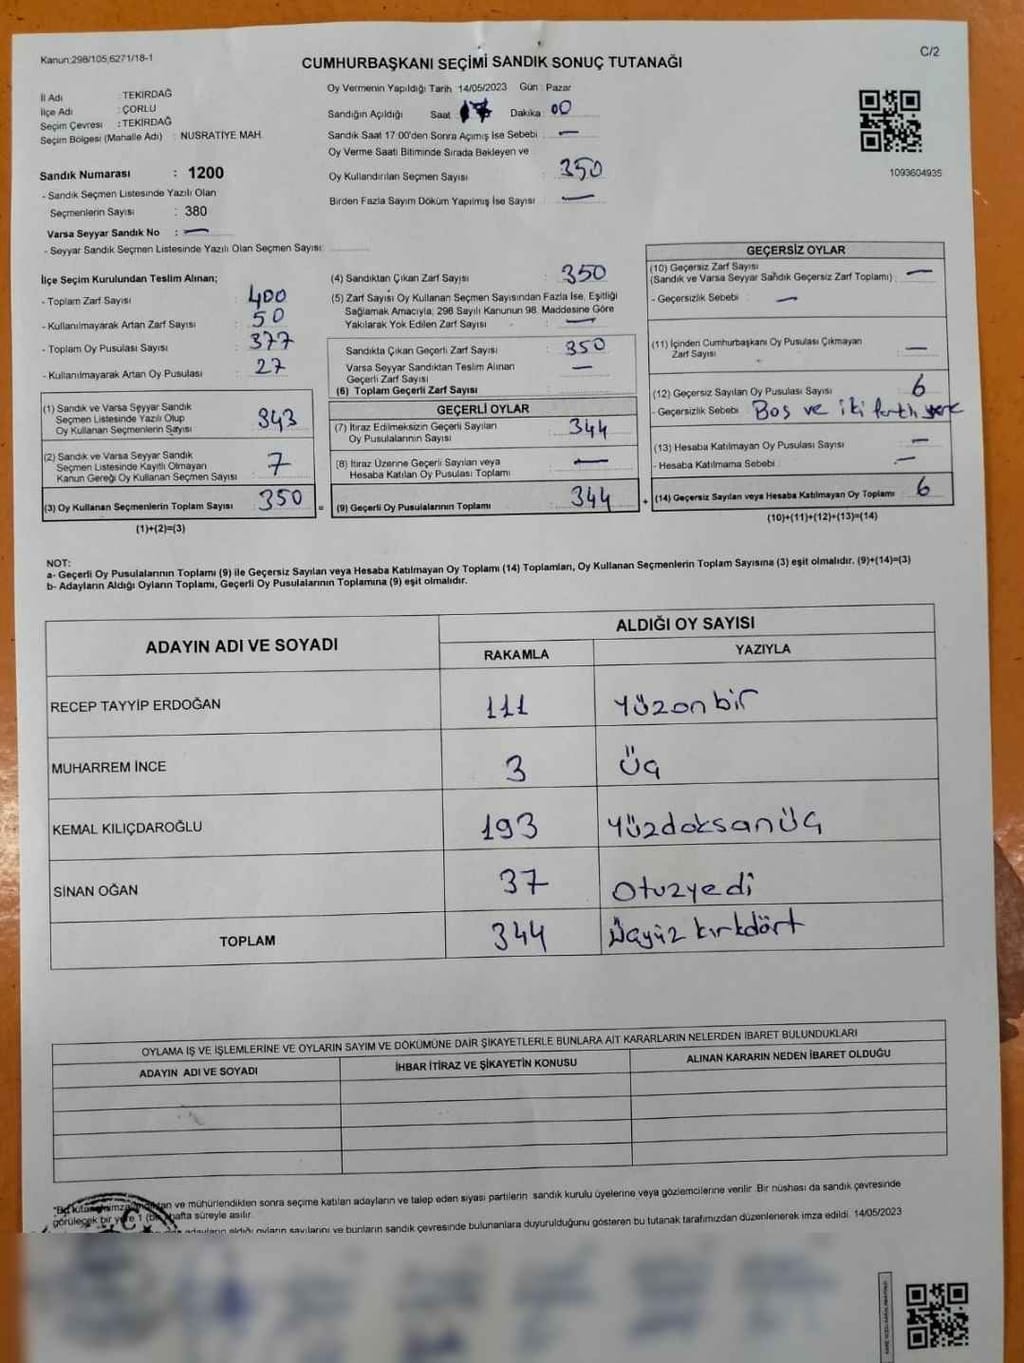 Kanun:298/105;6271/18-1
C/2
CUMHURBAŞKANI SEÇİMİ SANDIK SONUÇ TUTANAĞI
İl Adı : TEKİRDAĞ
İlçe Adı : ÇORLU
Seçim Çevresi : TEKİRDAĞ
Seçim Bölgesi (Mahalle Adı) : NUSRATİYE MAH.
Sandık Numarası : 1200
- Sandık Seçmen Listesinde Yazılı Olan
Seçmenlerin Sayısı : 380
Varsa Seyyar Sandık No : —
- Seyyar Sandık Seçmen Listesinde Yazılı Olan Seçmen Sayısı:
Oy Vermenin Yapıldığı Tarih : 14/05/2023 Gün : Pazar
Sandığın Açıldığı Saat : 17 Dakika : 00
Sandık Saat 17:00'den Sonra Açılmış İse Sebebi : —
Oy Verme Saati Bitiminde Sırada Bekleyen ve
Oy Kullandırılan Seçmen Sayısı : 350
Birden Fazla Sayım Döküm Yapılmış İse Sayısı : —
1093604935
İlçe Seçim Kurulundan Teslim Alınan;
- Toplam Zarf Sayısı : 400
- Kullanılmayarak Artan Zarf Sayısı : 50
- Toplam Oy Pusulası Sayısı : 377
- Kullanılmayarak Artan Oy Pusulası : 27
(1) Sandık ve Varsa Seyyar Sandık
Seçmen Listesinde Yazılı Olup
Oy Kullanan Seçmenlerin Sayısı : 343
(2) Sandık ve Varsa Seyyar Sandık
Seçmen Listesinde Kayıtlı Olmayan
Kanun Gereği Oy Kullanan Seçmen Sayısı : 7
(3) Oy Kullanan Seçmenlerin Toplam Sayısı : 350
(1)+(2)=(3)
(4) Sandıktan Çıkan Zarf Sayısı : 350
(5) Zarf Sayısı Oy Kullanan Seçmen Sayısından Fazla İse, Eşitliği
Sağlamak Amacıyla; 298 Sayılı Kanunun 98. Maddesine Göre
Yakılarak Yok Edilen Zarf Sayısı : —
Sandıkta Çıkan Geçerli Zarf Sayısı : 350
Varsa Seyyar Sandıktan Teslim Alınan
Geçerli Zarf Sayısı : —
(6) Toplam Geçerli Zarf Sayısı :
GEÇERLİ OYLAR
(7) İtiraz Edilmeksizin Geçerli Sayılan
Oy Pusulalarının Sayısı : 344
(8) İtiraz Üzerine Geçerli Sayılan veya
Hesaba Katılan Oy Pusulası Toplamı : —
= (9) Geçerli Oy Pusulalarının Toplamı : 344
GEÇERSİZ OYLAR
(10) Geçersiz Zarf Sayısı
(Sandık ve Varsa Seyyar Sandık Geçersiz Zarf Toplamı) : —
- Geçersizlik Sebebi : —
(11) İçinden Cumhurbaşkanı Oy Pusulası Çıkmayan
Zarf Sayısı : —
(12) Geçersiz Sayılan Oy Pusulası Sayısı : 6
- Geçersizlik Sebebi : Boş ve iki
(13) Hesaba Katılmayan Oy Pusulası Sayısı : —
- Hesaba Katılmama Sebebi : —
+ (14) Geçersiz Sayılan veya Hesaba Katılmayan Oy Toplamı : 6
(10)+(11)+(12)+(13)=(14)
NOT:
a- Geçerli Oy Pusulalarının Toplamı (9) ile Geçersiz Sayılan veya Hesaba Katılmayan Oy Toplamı (14) Toplamları, Oy Kullanan Seçmenlerin Toplam Sayısına (3) eşit olmalıdır. (9)+(14)=(3)
b- Adayların Aldığı Oyların Toplamı, Geçerli Oy Pusulalarının Toplamına (9) eşit olmalıdır.
ADAYIN ADI VE SOYADI
ALDIĞI OY SAYISI
RAKAMLA YAZIYLA
RECEP TAYYİP ERDOĞAN 111 Yüzonbir
MUHARREM İNCE 3 Üç
KEMAL KILIÇDAROĞLU 193 Yüzdoksanüç
SİNAN OĞAN 37 Otuzyedi
TOPLAM 344 Üçyüz kırkdört
OYLAMA İŞ VE İŞLEMLERİNE VE OYLARIN SAYIM VE DÖKÜMÜNE DAİR ŞİKAYETLERLE BUNLARA AİT KARARLARIN NELERDEN İBARET BULUNDUKLARI
ADAYIN ADI VE SOYADI İHBAR İTİRAZ VE ŞİKAYETİN KONUSU ALINAN KARARIN NEDEN İBARET OLDUĞU
ve mühürlendikten sonra seçime katılan adayların ve talep eden siyasi partilerin sandık kurulu üyelerine veya gözlemcilerine verilir. Bir nüshası da sandık çevresinde
görülecek bir yere 1 hafta süreyle asılır.
aldığı oyların sayılarını ve bunların sandık çevresinde bulunanlara duyurulduğunu gösteren bu tutanak tarafımızdan düzenlenerek imza edildi. 14/05/2023